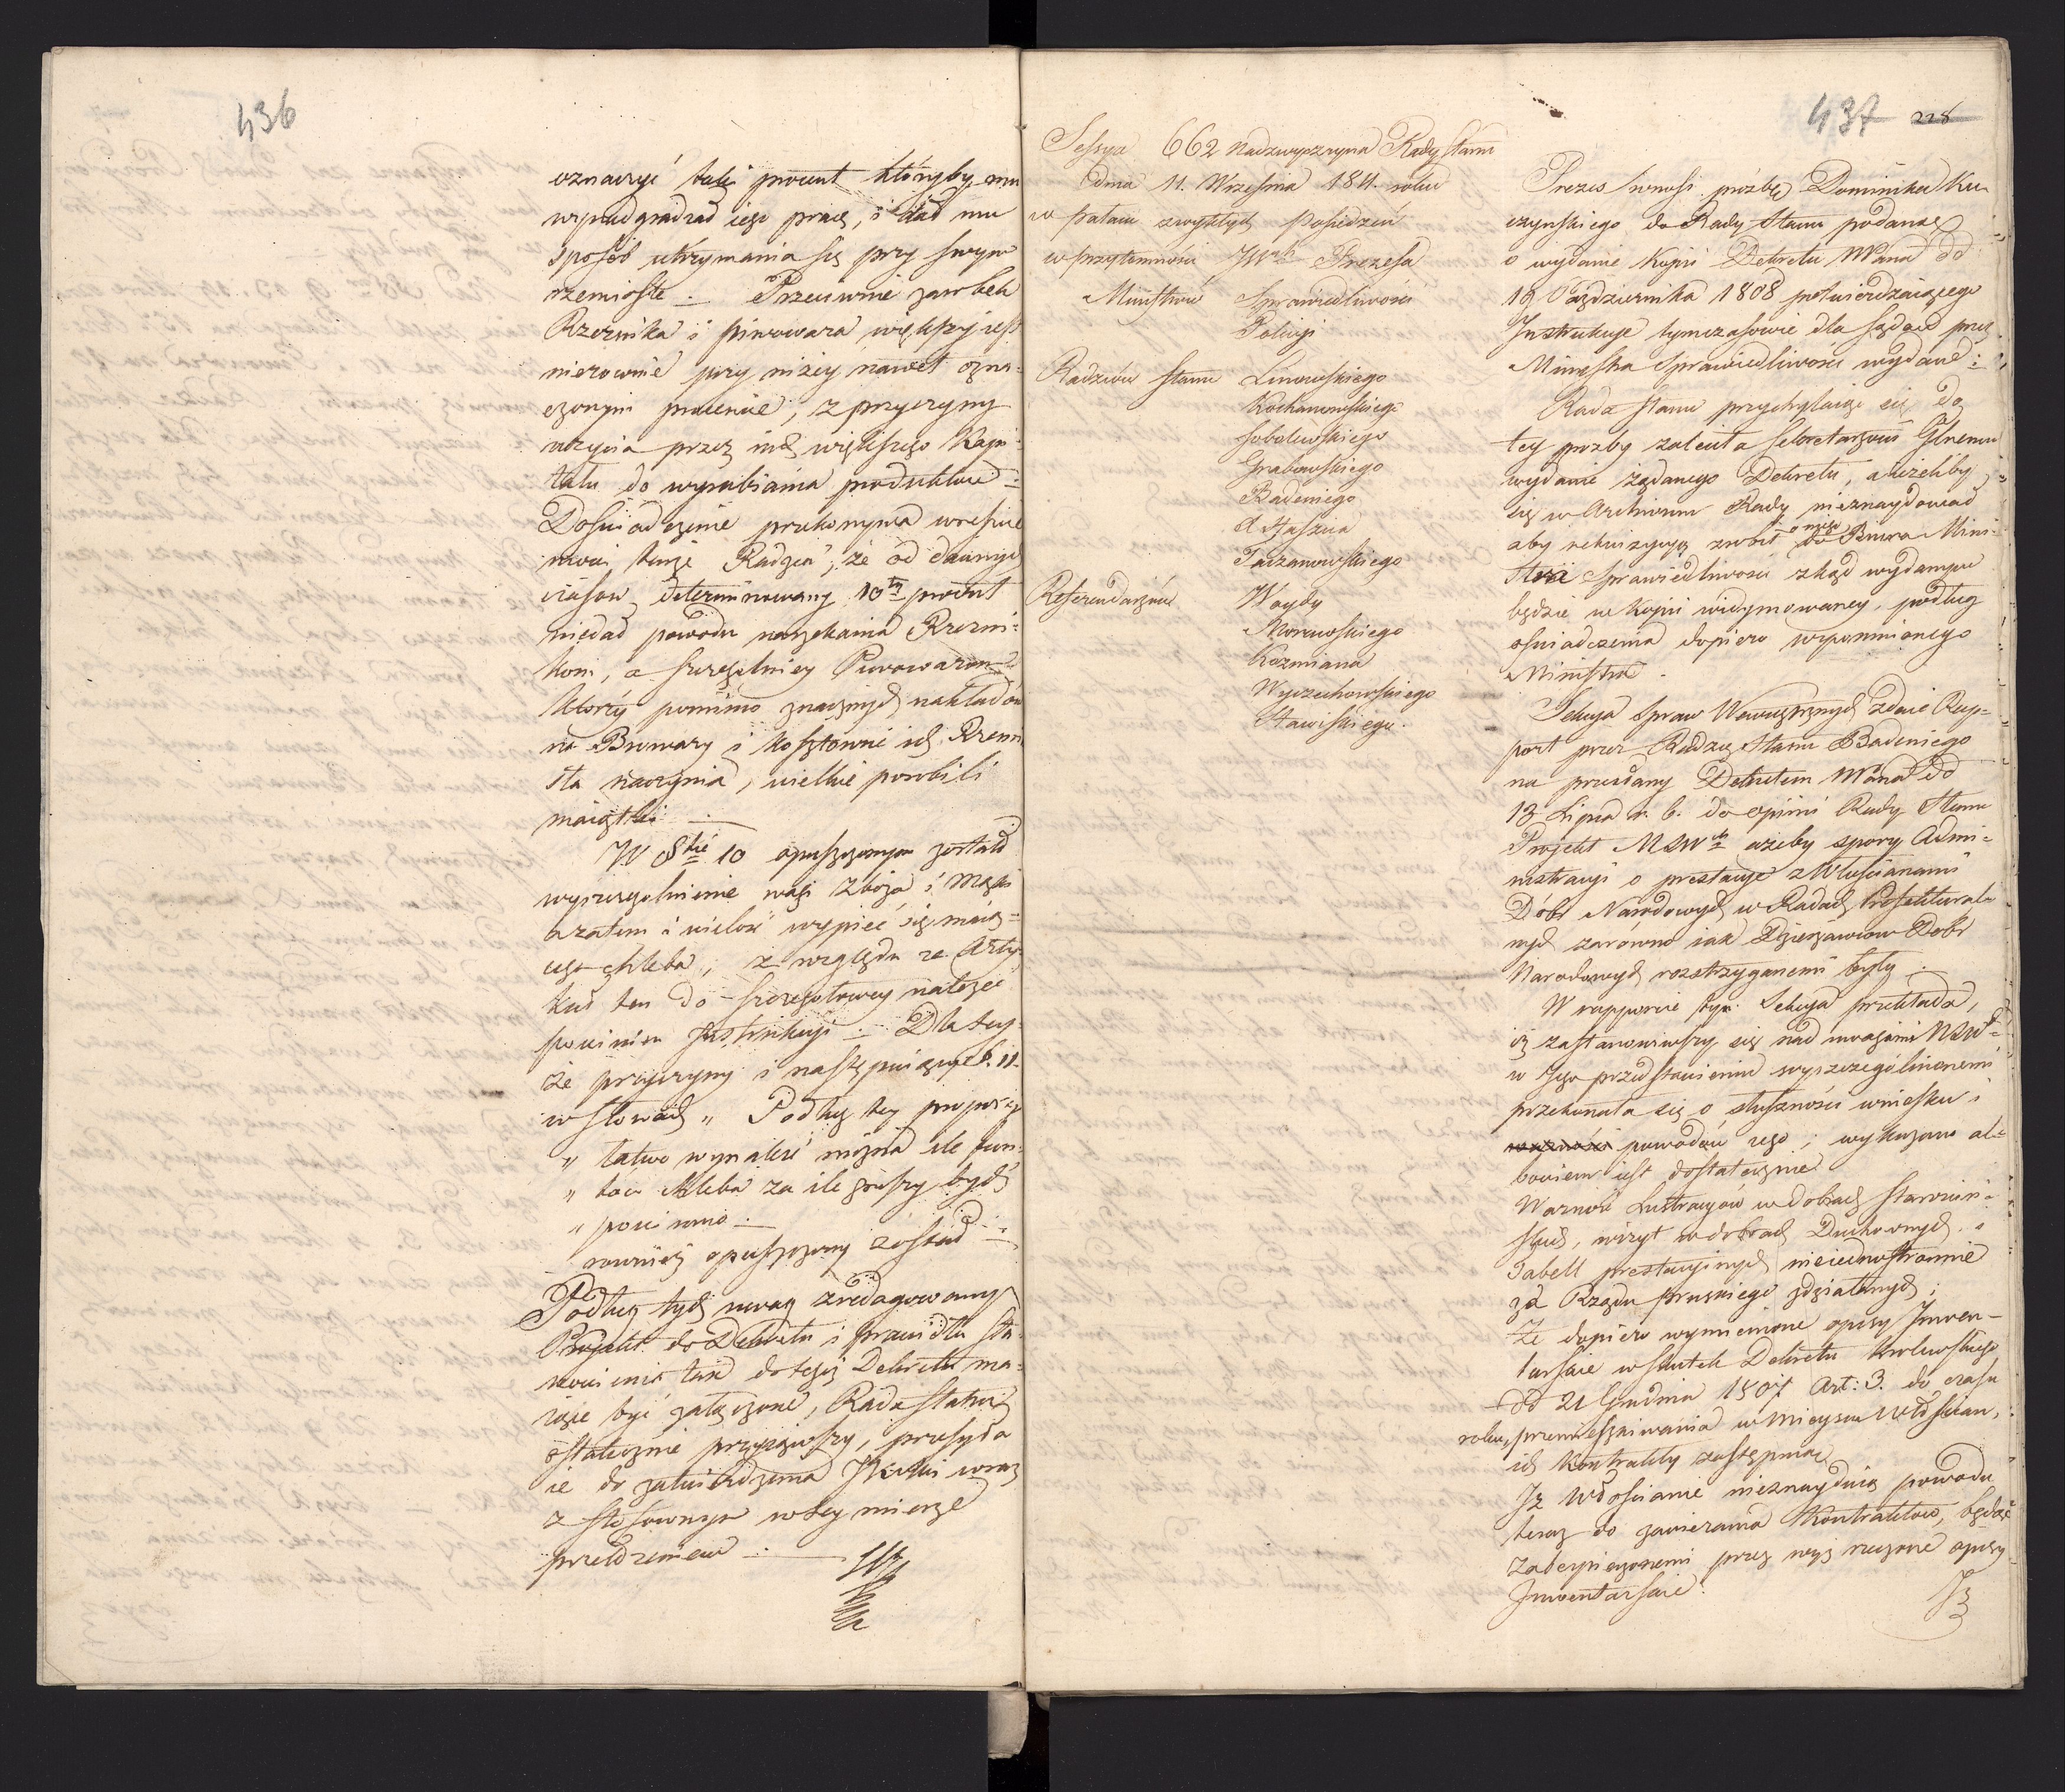 436
oznaczyć taki procent któryby mu
wynadgradzał iego pracę, i dał mu
sposób utrzymania się przy swym
rzemiośle . Przeciwnie zarobek
Rzeznika i piwowara większy iest
nierównie przy niższy nawet ozna-
czonym procencie, z przyczyny
użycia przez nich większego Kapi-
tału do wyrabiania produktów :
Doświadczenie przekonywa wreszcie
mowi tenże Radzca, że od dawnych
czasów determinowany 10ty procent
niedał powodu narzekania Rzezni-
kom, a szczegolniey Piwowarom
którzy pomimo znacznych nakładów
na Browary i kosztowne ich Rzemio-
sła naczynia, wielkie porobili
maiątki .
W §fie 10 opuszczonym został
wyszczegolnienie wagi zboża i mąki
a zatem i wielość wypiec się maią-
cego chleba, z względu że Arty-
kuł ten do szczegołowey należeć
powinien Instrukcyi . Dla tey-
że przyczyny i następuiący §. 11.
w słowach „ Podług tey proporcyi
„ łatwo wynaleść można ile fun-
„ tów chleba za ile groszy bydź
„ powinno .
rownież opuszczony został
Podług tych uwag zredagowany
Projekt do Dekretu i prawidła sta-
nowienia tax do tegoż Dekretu ma-
iące być załączone, Rada Stanu
ostatecznie przyiąwszy, przesyła
ie do zatwierdzenia JKMci wraz
z stosownym w tey mierze
przełożeniem .
437 228
Sessya 662 Nadzwyczayna Rady Stanu
dnia 11. Września 1811. roku
w pałacu zwykłych posiedzeń
w przytomności JWch Prezesa
Ministrów Sprawiedliwości
Policyi
Radzców Stanu Linowskiego
Kochanowskiego
Sobolewskiego
Grabowskiego
Badeniego
X Staszica
Taczanowskiego
Referendarzów Woydy
Morawskiego
Kozmiana
Wyczechowskiego
Stawiskiego.
Prezes wnosi prozbę Dominika Ku-
czyńskiego do Rady Stanu podaną
o wydanie kopii Dekretu NPana dd
19 Października 1808 potwierdzaiącego
Instrukcye tymczasowie dla sądów przez
Ministra Sprawiedliwości wydane :
Rada Stanu przychylaiąc się do
tey prozby zaleciła Sekretarzowi Glnemu
wydanie żądanego Dekretu, a ieżeliby
się w Archiwum Rady nieznaydował
aby rekwizycyą zrobił o niego do Biura Mini-
stra Sprawiedliwości zkąd wydanym
będzie w kopii widymowaney, podług
oświadczenia dopiero wspomnionego
Ministra .
Sekcya Spraw Wewnętrznych zdaie Rap-
port przez Radzcę Stanu Badeniego
na przesłany Dekretem NPana dd
13 Lipca r. b. do opinii Rady Stanu
Projekt MSWch ażeby spory Admi-
nistracyi o prestacye z Włościanami
Dobr Narodowych w Radach Prefektural-
nych zarówno iak Dzierzawcow Dobr
Narodowych rozstrzyganemi były .
W rapporcie tym Sekcya przekłada,
iż zastanowiwszy się nad uwagami MSW
w Jego przedstawieniu wyszczególnionemi
przekonała się o słuszności wniosku i
powodów iego ; wykazano al-
bowiem iest dostatecznie
Ważność Lustracyów w dobrach Starościń-
skich, wizyt w dobrach Duchownych i
Tabell prestacyinych niejednostronnie
za Rządu pruskiego zdziałanych ;
Ze dopiero wymienione opisy Inwen-
tarskie wskutek Dekretu Krolewskiego
dd 21 Grudnia 1807 Art: 3. do czasu
roku, przemieszkiwania w mieyscu Włościan,
ich kontrakty zastępuią
Iż Włościanie nieznayduią powodu
teraz do zawierania Kontraktów, będąc
zabezpieczonemi przez wyż rzeczone opisy
Inwentarskie .
Iż